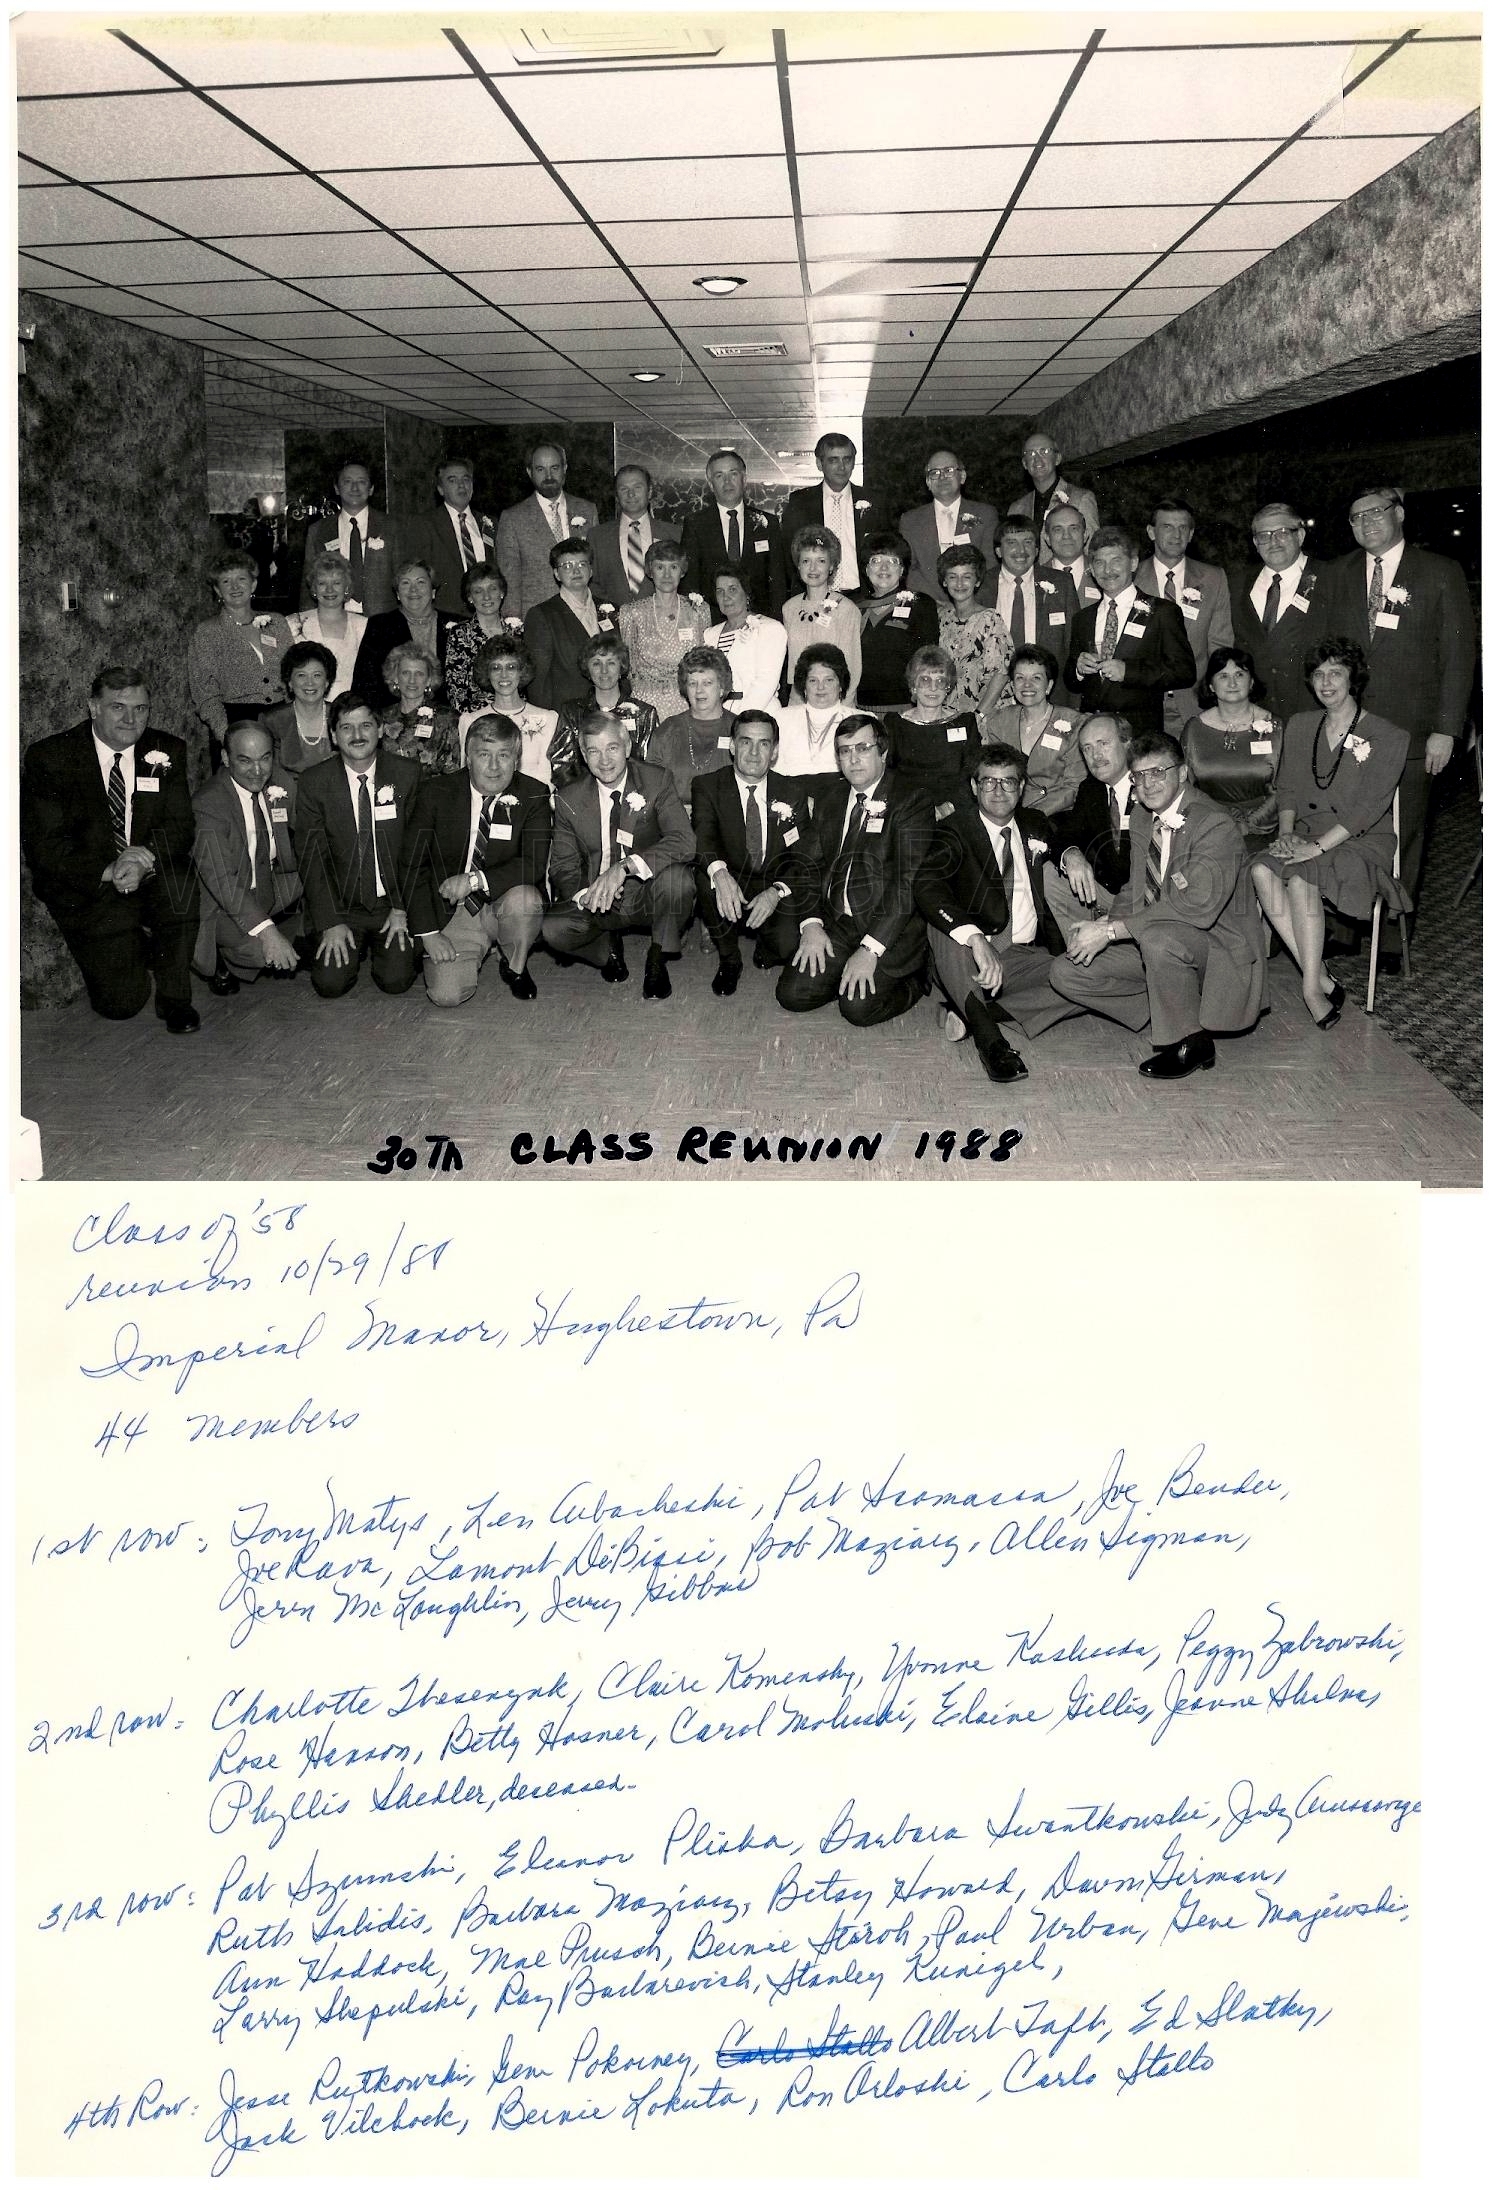 www.DuryeaPA.com
30Th CLASS REUNION 1988
Class of '58
reunion 10/29/88
Imperial Manor, Hughestown, Pa
44 members
1st row: Tony Matys, Len Arbacheski, Pat Scamacca, Joe Bender,
Joe Rava, Lamont DeBiasi, Bob Maziarz, Allen Sigman,
Jerry McLoughlin, Jerry Gibbons
2nd row: Charlotte Komensky, Yvonne Peggy Zabrowski,
Rose Hanson, Betty Hosner, Carol Moluski, Elaine Gillis, Jeanne
Phyllis Shedler, deceased.
3rd row: Pat Szumski, Eleanor Pliska, Barbara Swantkowski, Judy
Ruth Salidis, Barbara Maziarz, Betsy Howard, Dawn Girman,
Ann Haddock, Mae Prusch, Bernie Staroh, Paul Urban, Gene Majewski,
Larry Shepulski, Ray Stanley Kunigel,
4th Row: Jesse Rutkowski, Gene Pokorney, Carlo Stallo Albert Taft, Ed Slatky,
Jack Vilchock, Bernie Lokuta, Ron Orloski, Carlo Stallo